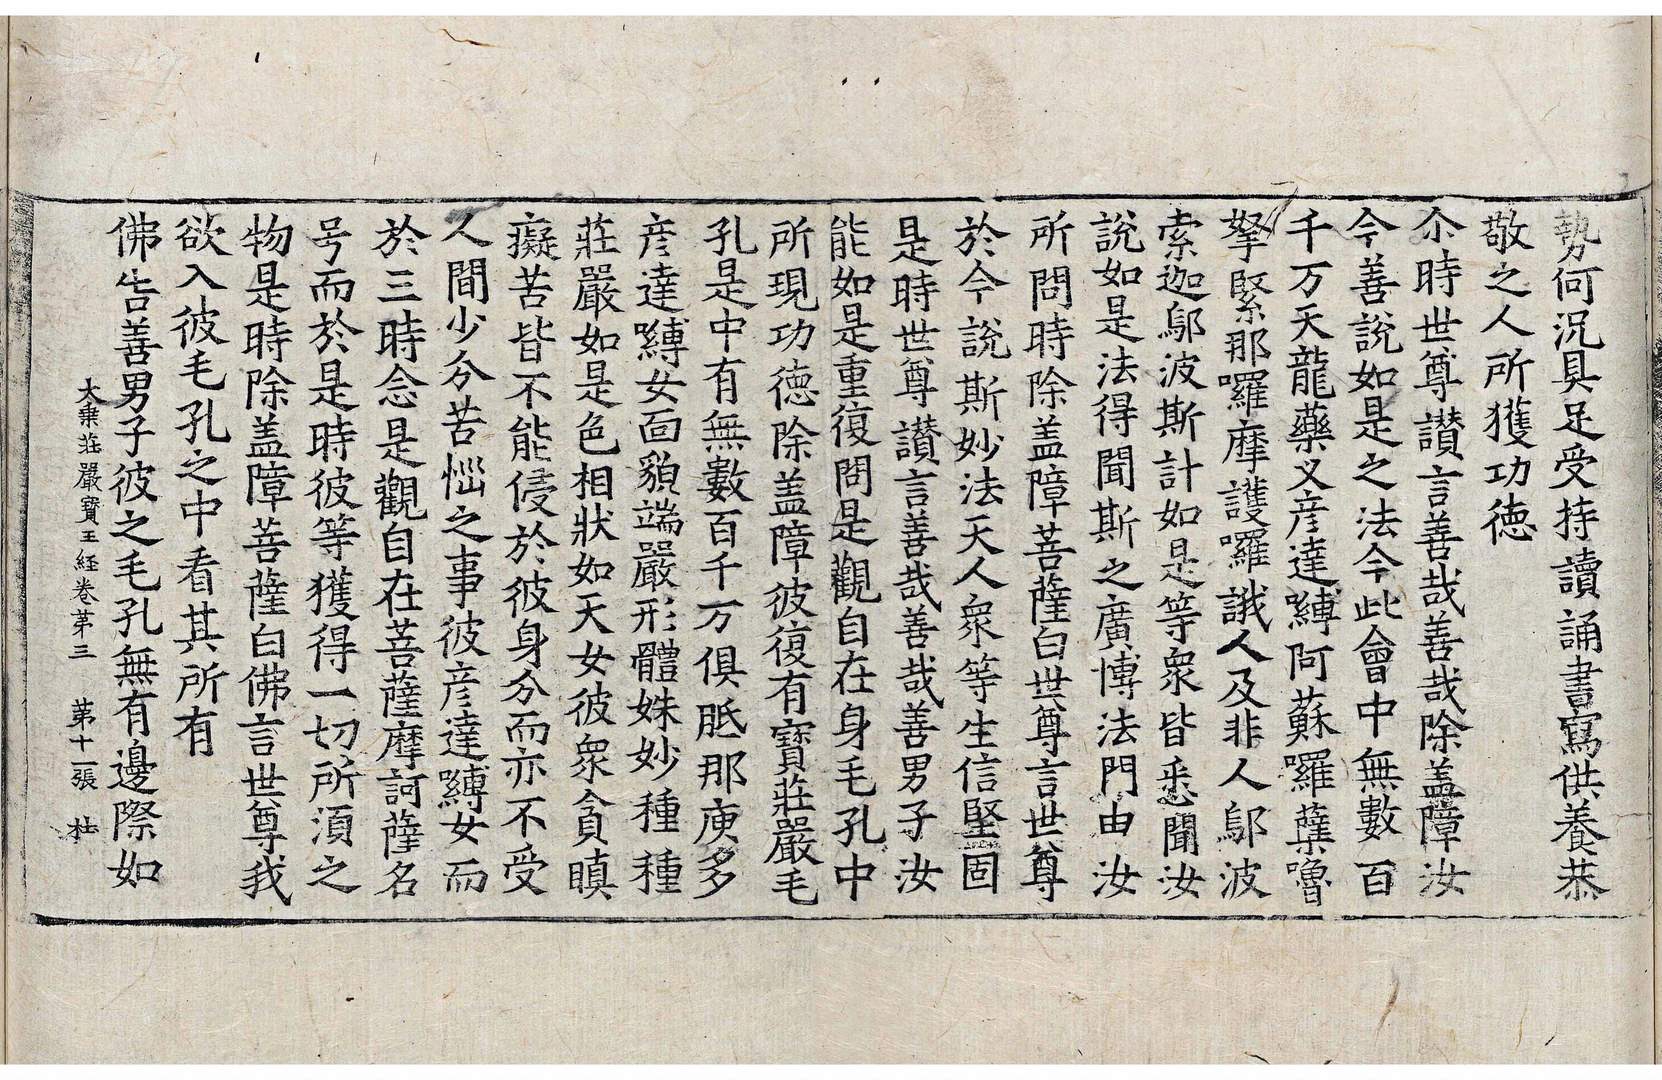 勢何況具足受持讀誦書寫供養恭
敬之人所獲功德
尒時世尊讃言善哉善哉除盖障汝
今善說如是之法今此會中無數百
千万天龍藥叉彦達嚩阿蘇囉蘖嚕
拏緊那囉摩護囉誐人及非人鄔波
索迦鄔波斯計如是等衆皆悉聞汝
說如是法得聞斯之廣博法門由汝
所問時除盖障菩薩白世尊言世尊
於今說斯妙法天人衆等生信堅固
是時世尊讃言善哉善哉善男子汝
能如是重復問是觀自在身毛孔中
所現功德除盖障彼復有寶莊嚴毛
孔是中有無數百千万俱胝那庾多
彦達嚩女面貌端嚴形體姝妙種種
莊嚴如是色相狀如天女彼衆貪瞋
癡苦皆不能侵於彼身分而亦不受
人間少分苦惱之事彼彦達嚩女而
於三時念是觀自在菩薩摩訶薩名
号而於是時彼等獲得一切所湏之
物是時除盖障菩薩白佛言世尊我
欲入彼毛孔之中看其所有
佛告善男子彼之毛孔無有邊際如
大乗莊嚴寶王経卷第三 第十一張 杜